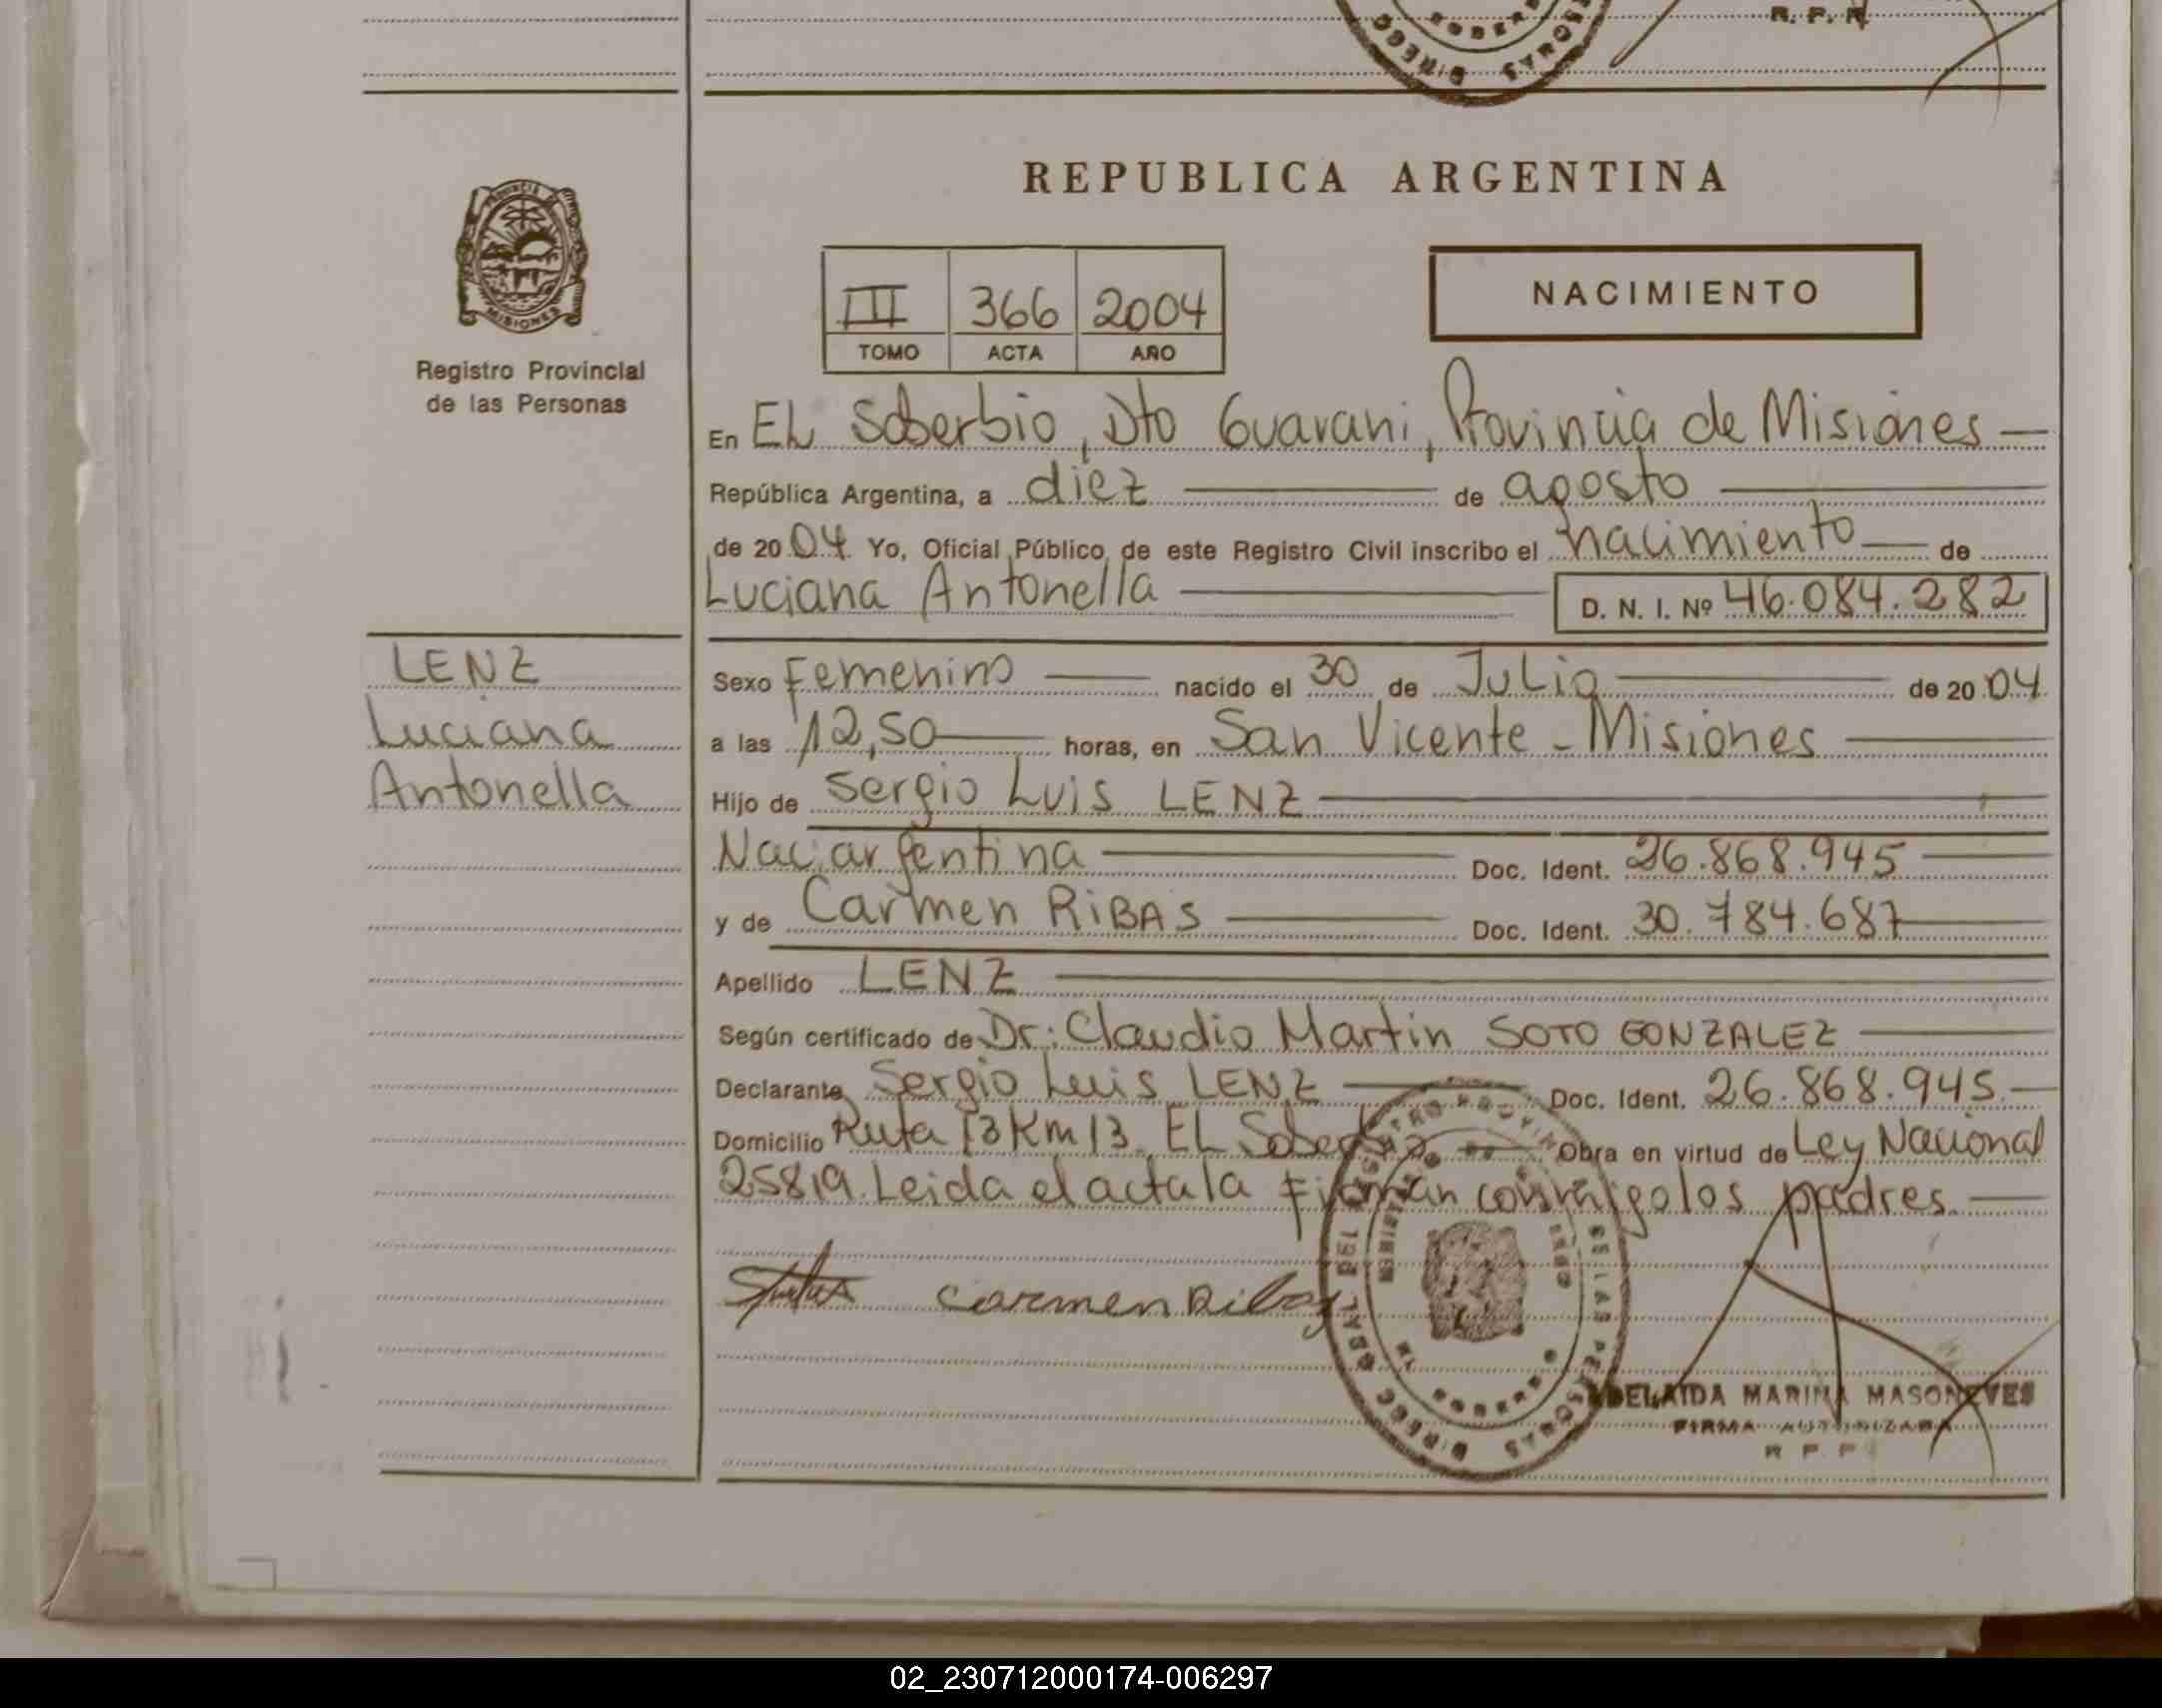 R. P. R.
REPUBLICA ARGENTINA
PROVINCIA DE
MISIONES
Registro Provincial
de las Personas
III 366 2004
TOMO ACTA AÑO
NACIMIENTO
En EL Soberbio, Dto Guarani, Provincia de Misiones
República Argentina, a diez de agosto
de 2004 Yo, Oficial Público de este Registro Civil inscribo el nacimiento de
Luciana Antonella D. N. I. Nº 46.084.282
LENZ
Luciana
Antonella
Sexo Femenino nacido el 30 de Julio de 2004
a las 12,50 horas, en San Vicente - Misiones
Hijo de Sergio Luis LENZ
Nac. argentina Doc. Ident. 26.868.945
y de Carmen RIBAS Doc. Ident. 30.784.687
Apellido LENZ
Según certificado de Dr: Claudio Martin SOTO GONZALEZ
Declarante Sergio Luis LENZ Doc. Ident. 26.868.945
Domicilio Ruta 13 Km 13 EL Soberbio Obra en virtud de Ley Nacional
25819. Leida el acta la Firman conmigo los padres.
Carmen Ribas
ADELAIDA MARINA MASONEVES
FIRMA AUTORIZADA
R P P
02_230712000174-006297